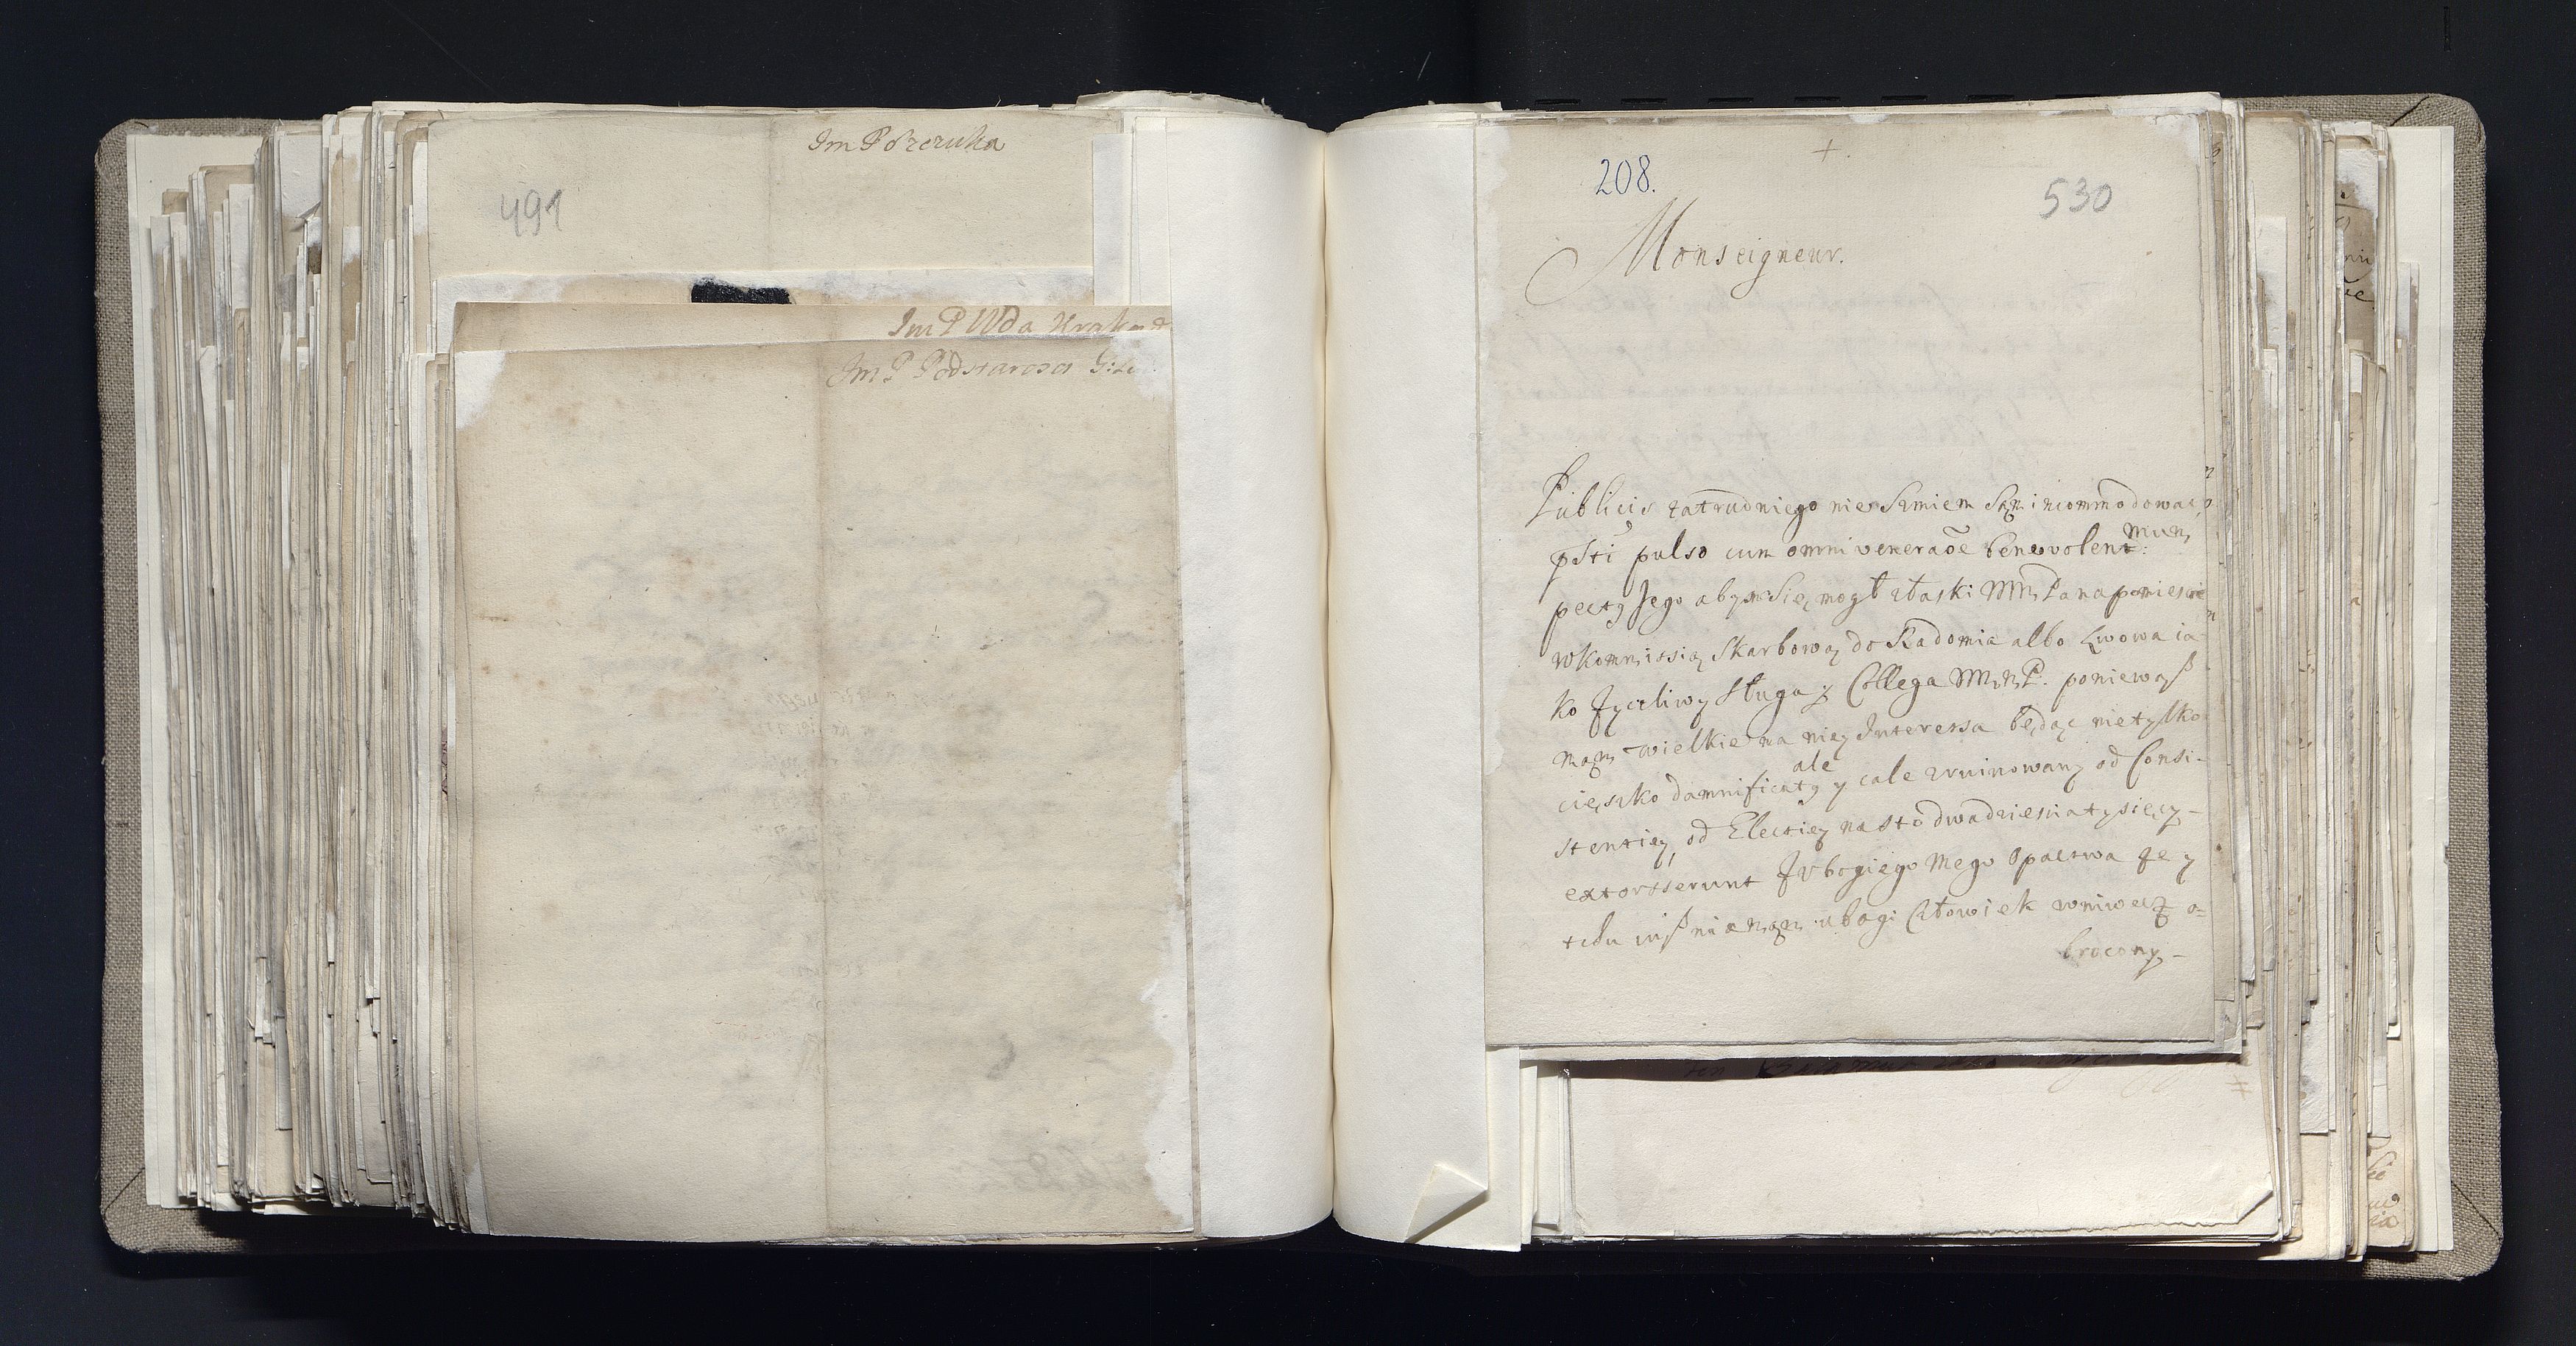 Im P Porczuka
491
Im P Wda Krakow
Im P Podstarosci G:
+
208.
530
Monseigneur.
Publicis zatrudniego nie Smiem Szm incommodować,
pħti pulso cum omni veneraõe benevolent:
mum
pectg Jego abym Się mogł złaski MMPana pomiescić
w Kommissią Skarbową do Radomia albo Lwowa ia
ko Życzliwy Sługa y Collega MMP. poniewasz
mąm wielkie na nię Interessa będąc nietylko
cięszko damnificatg y cale zruinowany od Consi-
ale
stentiey, od Electiey na sto dwadziescia tysięcy-
extorsserunt Z Vbogiego Mego Opactwa że y
tchu iusz nie mąm ubogi Człowiek wniwecz o=
brocony-